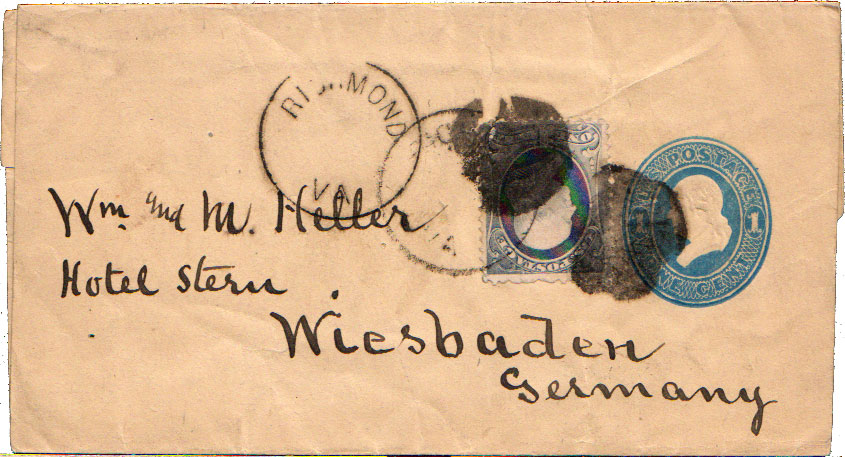 RICHMOND
VA.
U.S. POSTAGE
1
ONE CENT
Wm. and M. Heller
Hotel Stern
Wiesbaden
Germany